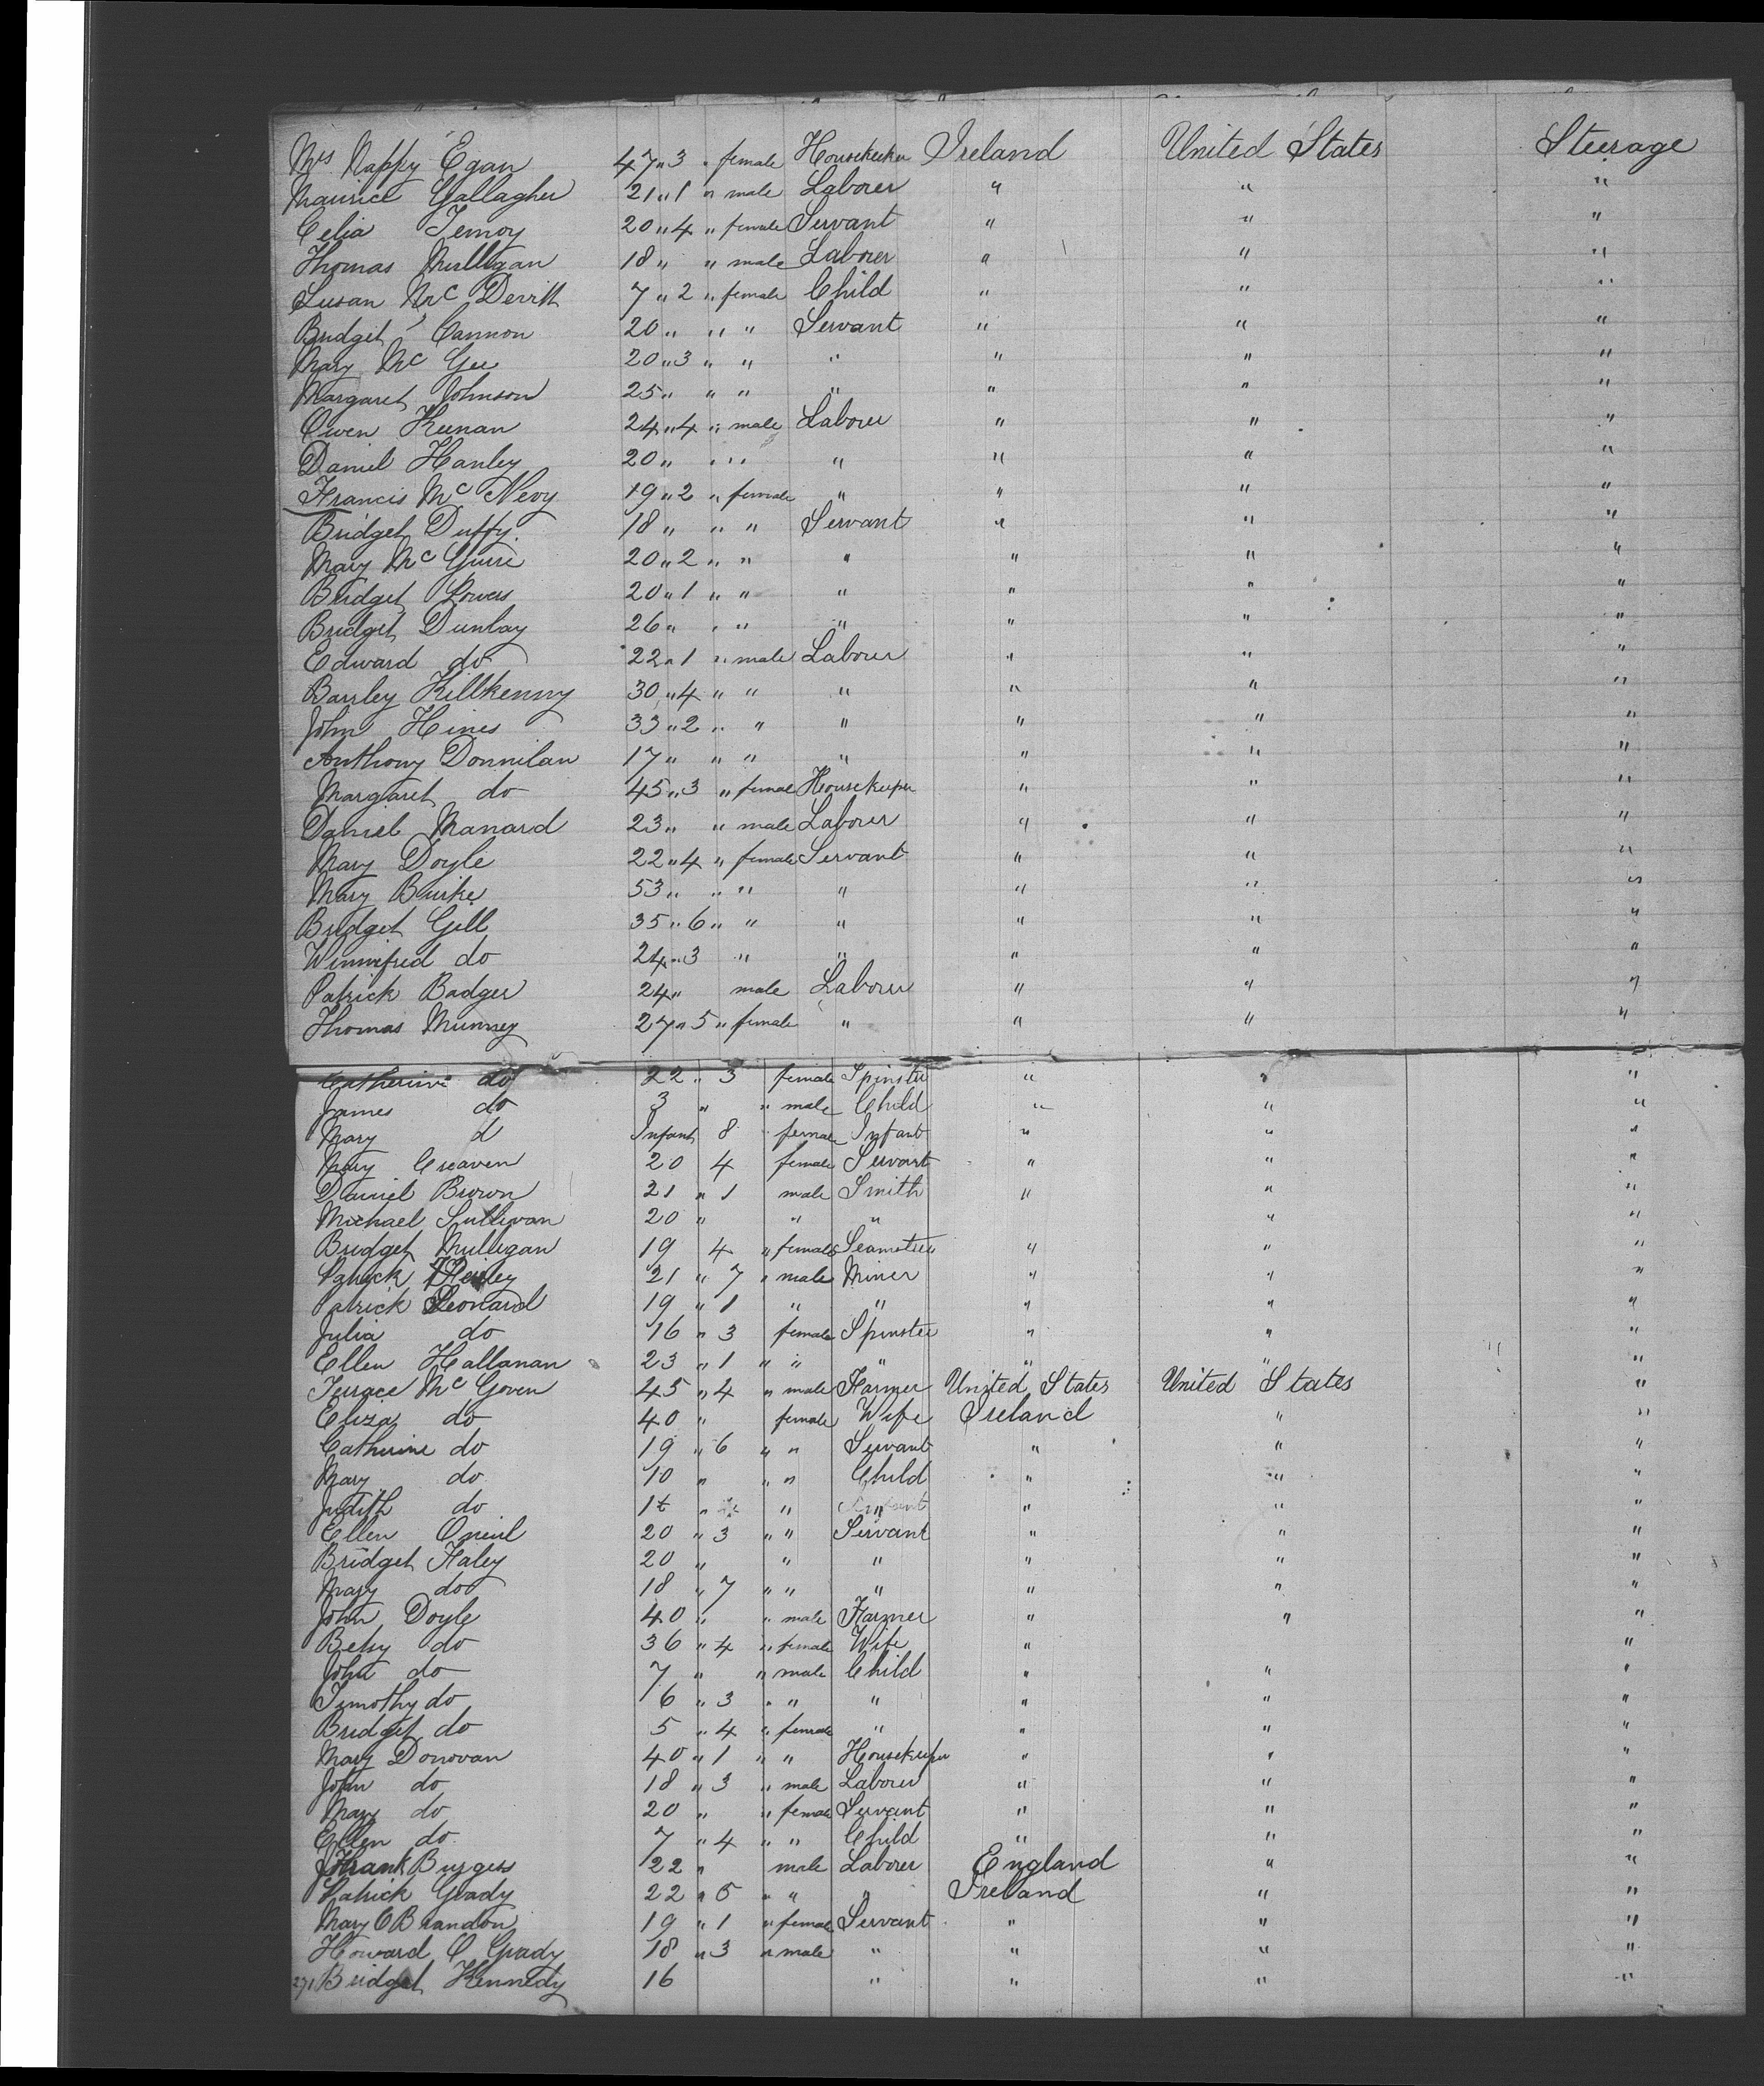 Mrs Nappy Egan 47 " 3 " female Housekeeker Ireland United States Steerage
Maurice Gallagher 21 " 1 " male Laborer " " "
Celia Temoy 20 " 4 " female Servant " " "
Thomas Mulligan 18 " " male Laborer " " "
Susan Mc Derritt 7 " 2 " female Child " " "
Bridget Cannon 20 " " " Servant " " "
Mary Mc Gee 20 " 3 " " " " " "
Margaret Johnson 25 " " " " " " "
Owen Keenan 24 " 4 " male Laborer " " "
Daniel Hanley 20 " " " " " " "
Francis Mc Nevy 19 " 2 " female " " " "
Bridget Duffy 18 " " " Servant " " "
Mary Mc Guire 20 " 2 " " " " " "
Bridget Powers 20 " 1 " " " " " "
Bridget Dunlay 26 " " " " " " "
Edward do 22 " 1 " male Laborer " " "
Barley Killkenny 30 " 4 " " " " " "
John Hines 33 " 2 " " " " " "
Anthony Donnilan 17 " " " " " " "
Margaret do 45 " 3 " female Housekeeper " " "
Daniel Manard 23 " " male Laborer " " "
Mary Doyle 22 " 4 " female Servant " " "
Mary Burke 53 " " " " " " "
Bridget Gill 35 " 6 " " " " " "
Winnifred do 24 " 3 " " " " "
Patrick Badger 24 " male Laborer " " "
Thomas Munney 27 " 5 " female " " " "
Catherine do 22 " 3 female Spinster " " "
James do 3 " " male Child " " "
Mary d Infant 8 female Infant " " "
Mary Creaven 20 4 female Servant " " "
Daniel Brown 21 " 1 male Smith " " "
Michael Sullivan 20 " " " " " "
Bridget Mulligan 19 4 " female Seamstress " " "
Patrick 21 " 7 " male Miner " " "
Patrick Leonard 19 " 1 " " " " "
Julia do 16 " 3 female Spinster " " "
Ellen Hallanan 23 " 1 " " " " " "
Terrace Mc Goven 45 " 4 " male Farmer United States United States "
Eliza do 40 " female Wife Ireland " "
Catherine do 19 " 6 " " Servant " " "
Mary do 10 " " " Child " " "
Judith do 1t " " " " " "
Ellen Oneil 20 " 3 " " Servant " " "
Bridget Haley 20 " " " " " "
Mary do 18 " 7 " " " " " "
John Doyle 40 " " male Farmer " " "
Betsy do 36 " 4 " female Wife " "
John do 7 " " male Child " " "
Timothy do 6 " 3 " " " " " "
Bridget do 5 " 4 " female " " " "
Mary Donovan 40 " 1 " " Housekeeper " " "
John do 18 " 3 " male Laborer " " "
Mary do 20 " " female Servant " " "
Ellen do 7 " 4 " " Child " " "
Frank Burgess 22 " male Laborer England " "
Patrick Grady 22 " 5 " " " Ireland " "
Mary O Brandon 19 " 1 " female Servant " " "
Howard O Grady 18 " 3 " male " " " "
271 Bridget Kennedy 16 " " " "